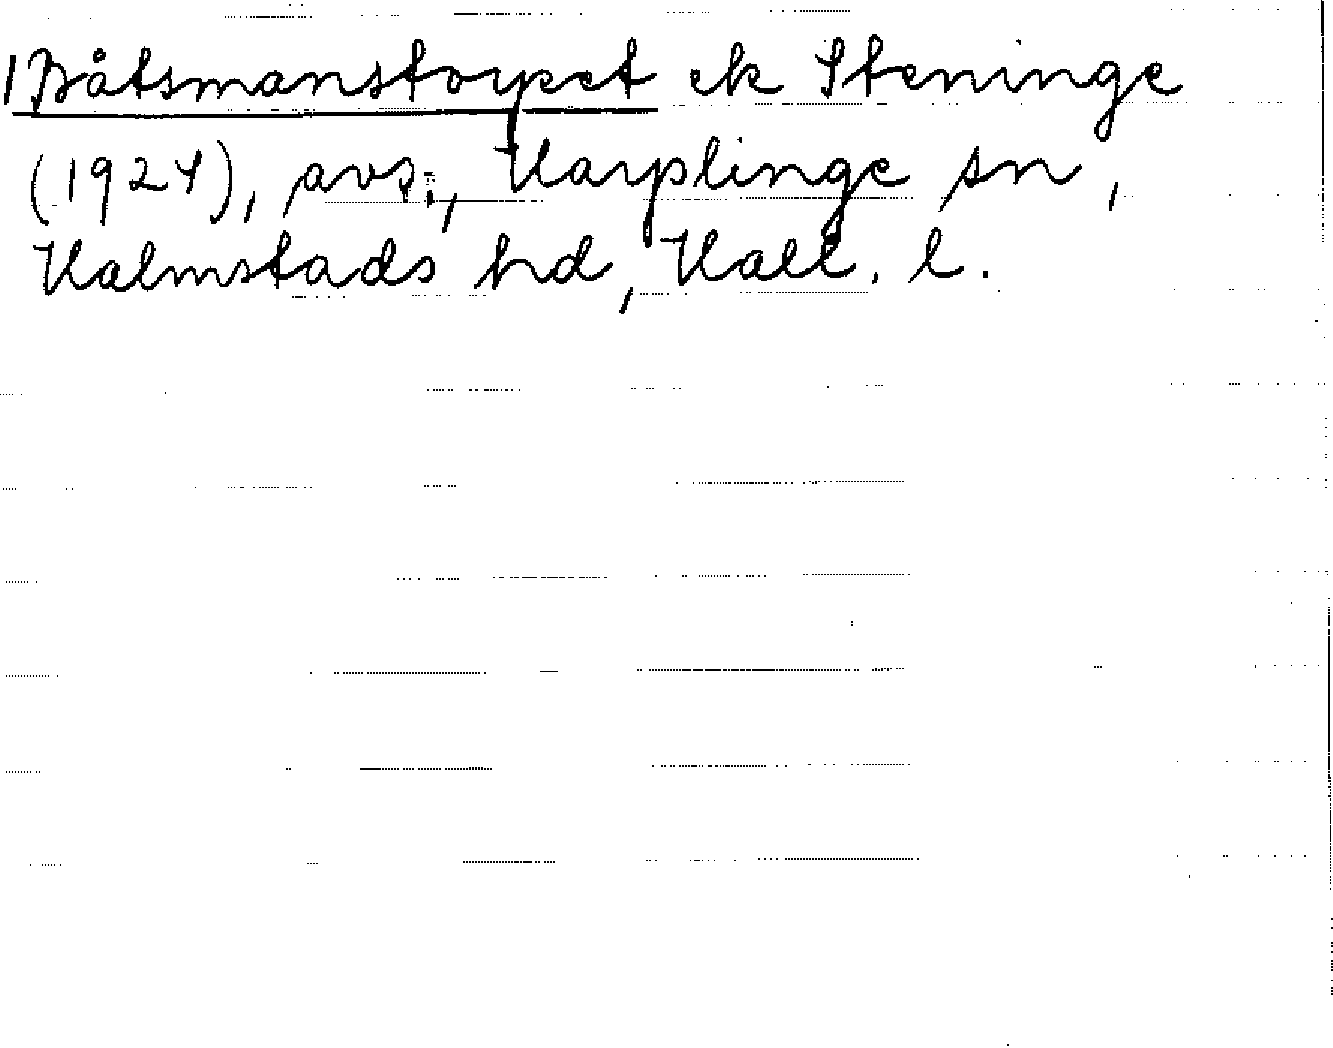 1 Båtsmanstorpet ek Steninge
(1924), avs., Harplinge sn,
Halmstads hd, Hall. l.